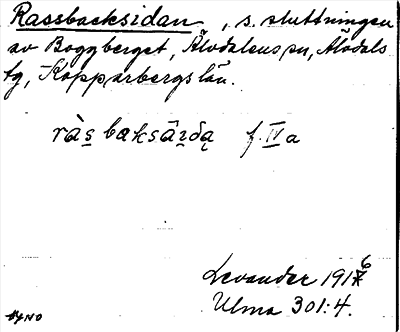 Rassbacksidan, s. sluttningen
av Boggberget, Älvdalens sn, Älvdals
tg, Kopparbergs län.
ràs̲ baksâi̲ðą f. IV a
Levander 1916
Ulma 301:4.